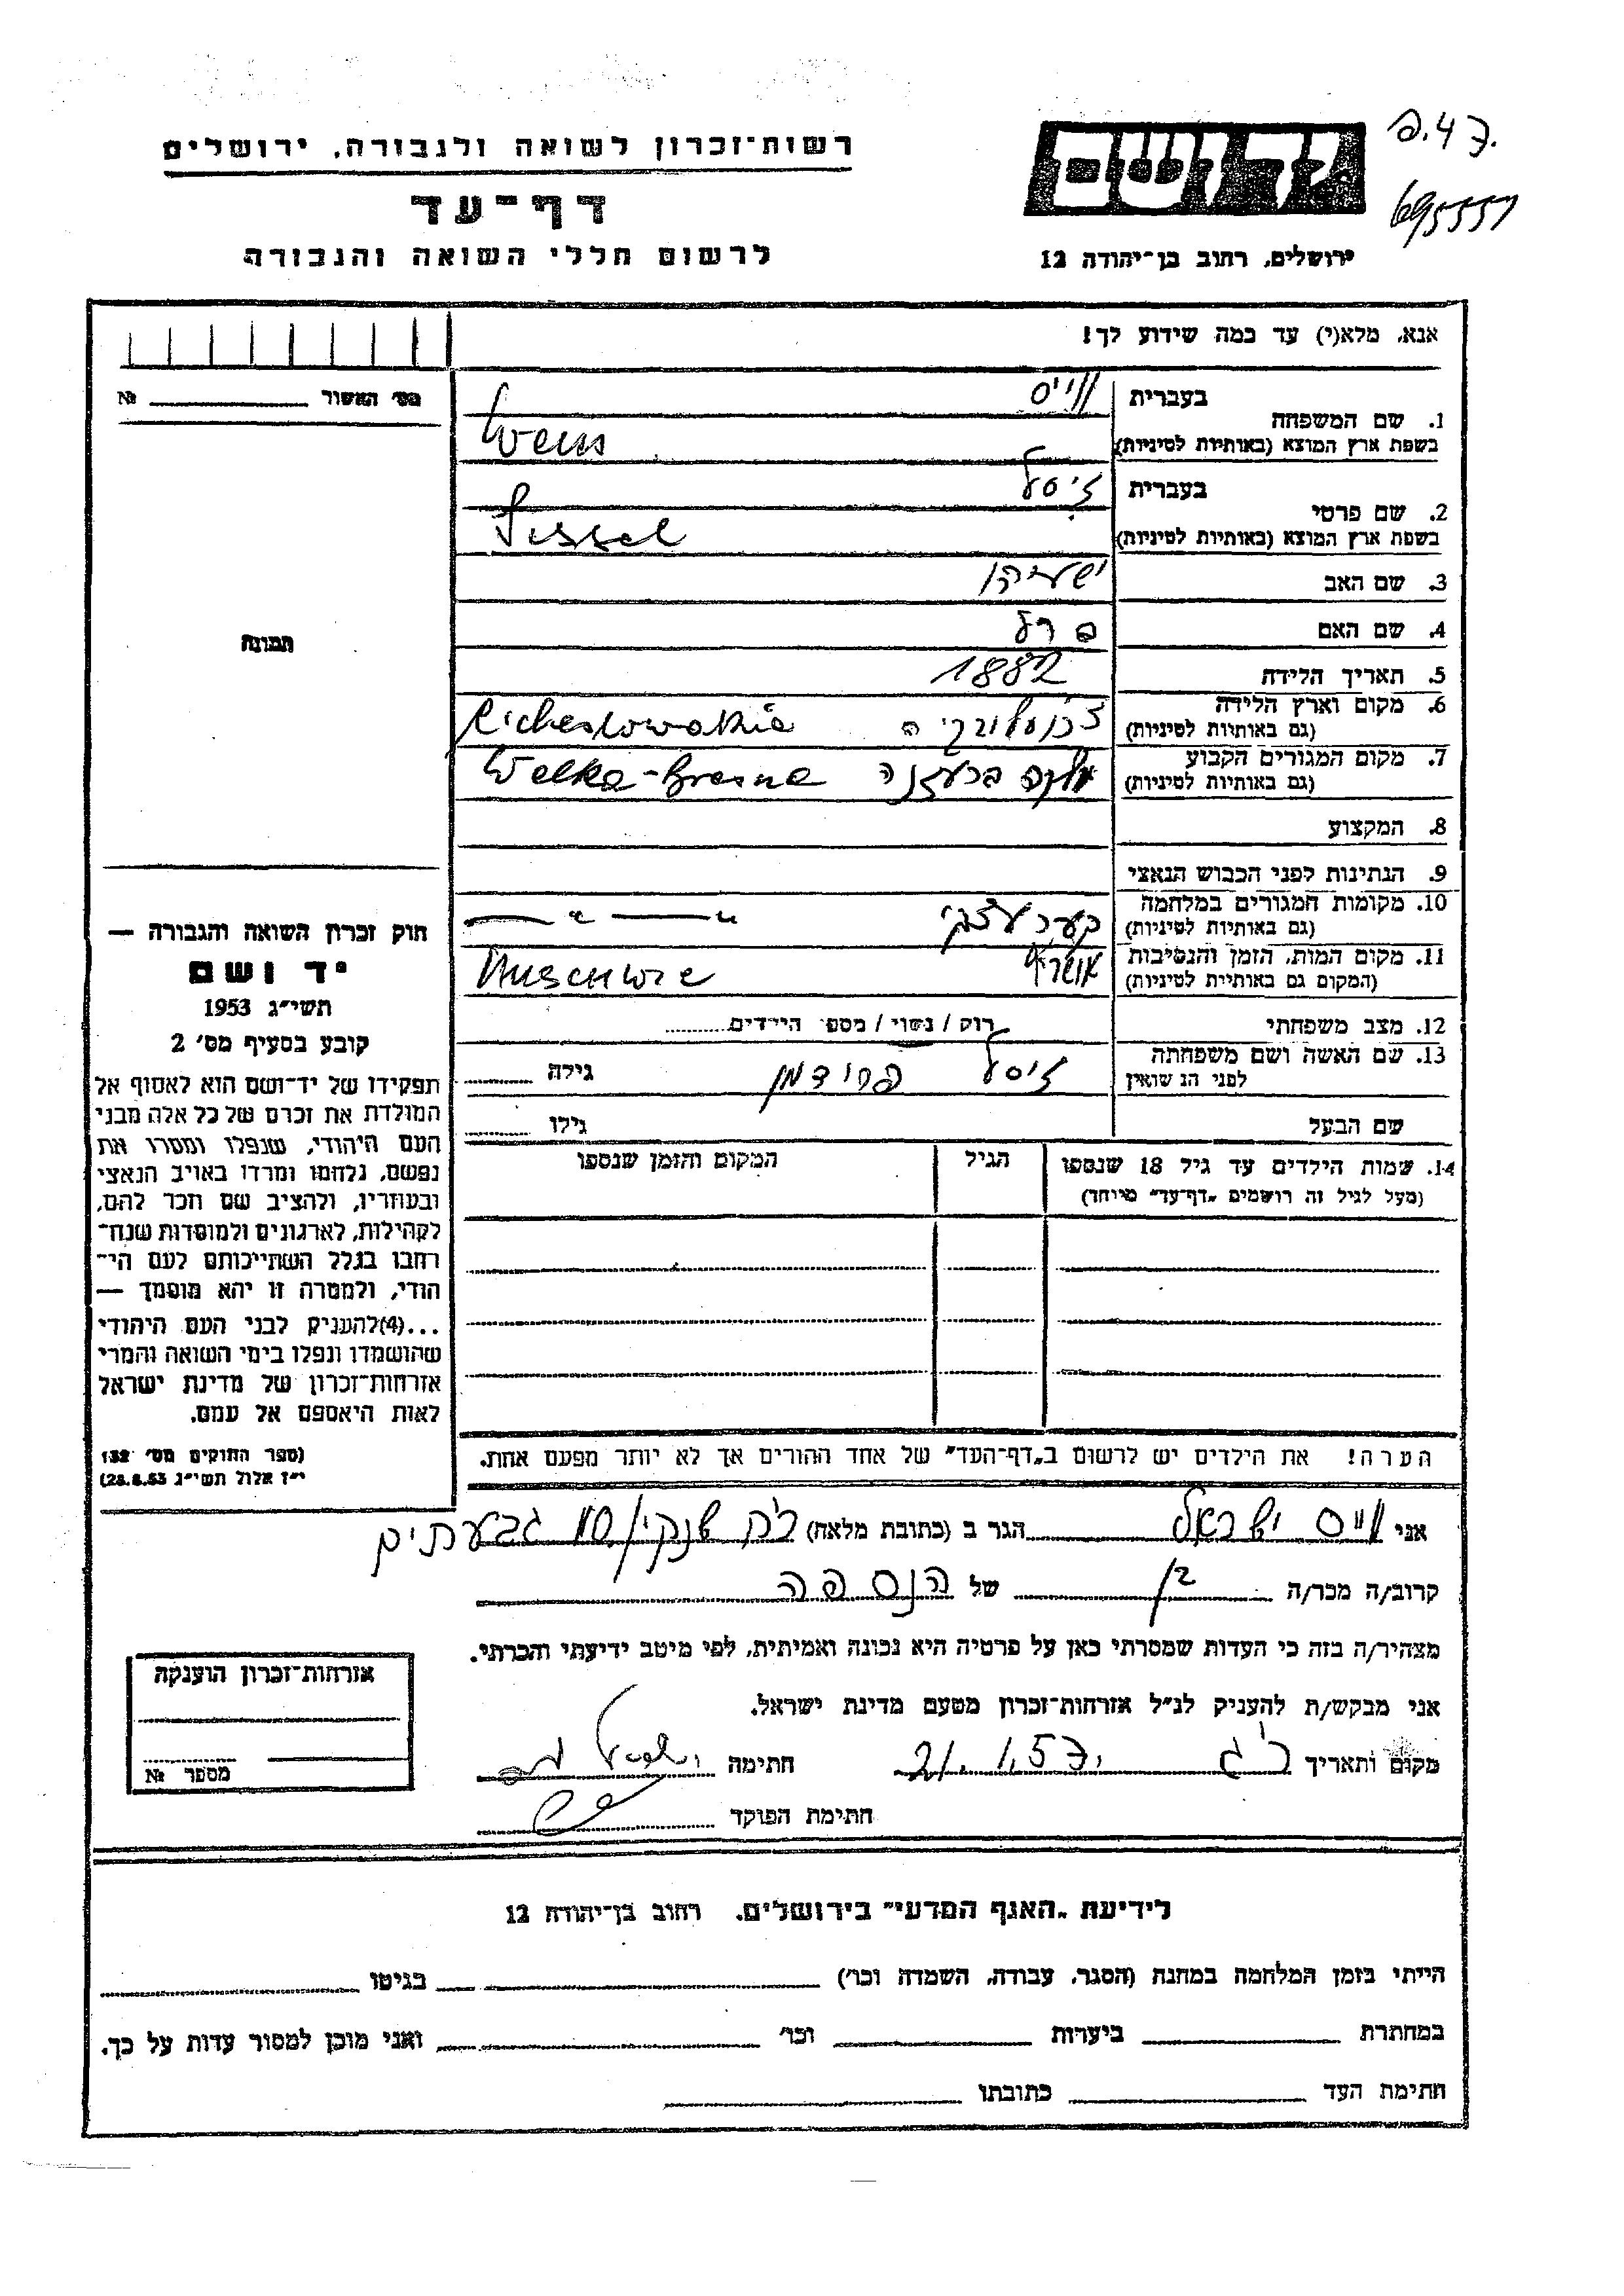 רשות־זכרון לשואה ולגבורה, ירושלים
דף־עד
לרשום חללי השואה והגבורה
יד ושם
ירושלים, רחוב בן־יהודה 12
אנא, מלא(י) עד כמה שידוע לך!
מס׳ האשור № 
תמונה
1. שם המשפחה
בעברית ווייס
בשפת ארץ המוצא (באותיות לטיניות) Weiss
2. שם פרטי
בעברית זיסל
בשפת ארץ המוצא (באותיות לטיניות)
3. שם האב ישעיהו
4. שם האם
5. תאריך הלידה 1882
6. מקום וארץ הלידה
(גם באותיות לטיניות)
7. מקום המגורים הקבוע Welka-Bresna
(גם באותיות לטיניות)
8. המקצוע
9. הנתינות לפני הכבוש הנאצי
10. מקומות המגורים במלחמה
(גם באותיות לטיניות)
11. מקום המות, הזמן והנסיבות
(המקום גם באותיות לטיניות)
12. מצב משפחתי רוק / נשוי / מספר הילדים
13. שם האשה ושם משפחתה זיסל פרידמן גילה
לפני הנשואין
שם הבעל גילו
14. שמות הילדים עד גיל 18 שנספו הגיל המקום והזמן שנספו
(מעל לגיל זה רושמים „דף־עד” מיוחד)
הערה! את הילדים יש לרשום ב„דף־העד” של אחד ההורים אך לא יותר מפעם אחת.
חוק זכרון השואה והגבורה —
יד ושם
תשי״ג 1953
קובע בסעיף מס׳ 2
תפקידו של יד־ושם הוא לאסוף אל
המולדת את זכרם של כל אלה מבני
העם היהודי, שנפלו ומסרו את
נפשם, נלחמו ומרדו באויב הנאצי
ובעוזריו, ולהציב שם וזכר להם,
לקהילות, לארגונים ולמוסדות שנח־
רבו בגלל השתייכותם לעם הי־
הודי, ולמטרה זו יהא מוסמך —
...(4)להעניק לבני העם היהודי
שהושמדו ונפלו בימי השואה והמרי
אזרחות־זכרון של מדינת ישראל
לאות היאספם אל עמם.
(ספר החוקים מס׳ 132
י״ז אלול תשי״ג 28.8.53)
אני ווייס ישראל הגר ב (כתובת מלאה) גבעתים
קרוב/ה מכר/ה בן של הנספה
מצהיר/ה בזה כי העדות שמסרתי כאן על פרטיה היא נכונה ואמיתית, לפי מיטב ידיעתי והכרתי.
אני מבקש/ת להעניק לנ״ל אזרחות־זכרון מטעם מדינת ישראל.
מקום ותאריך חתימה
חתימת הפוקד
אזרחות־זכרון הוענקה
מספר №
לידיעת „האגף המדעי” בירושלים, רחוב בן־יהודה 12
הייתי בזמן המלחמה במחנה (הסגר, עבודה, השמדה וכו׳) בגיטו
במחתרת ביערות וכו׳ ואני מוכן למסור עדות על כך.
חתימת העד כתובתו